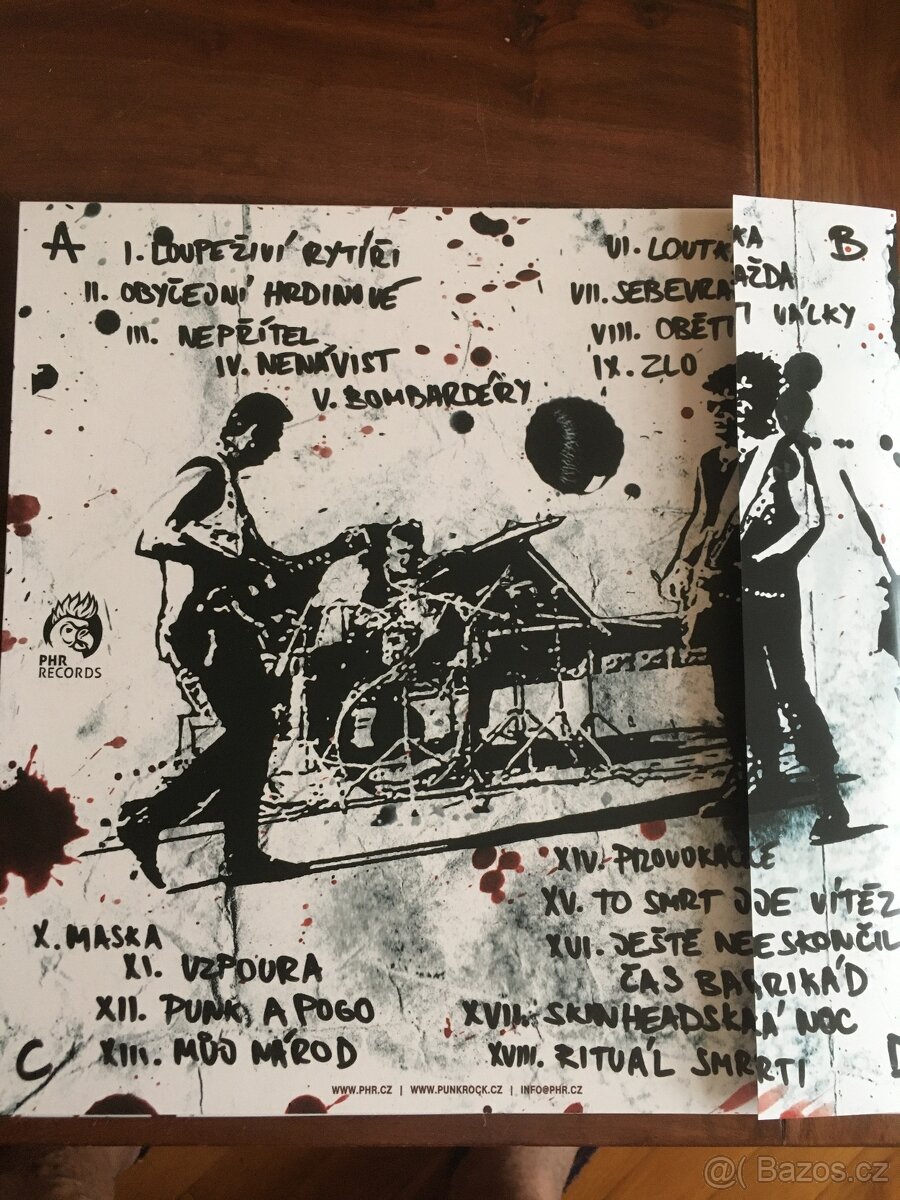 A
I. LOUPEŽIVÍ RYTÍŘI
II. OBYČEJNÍ HRDINOVÉ
III. NEPŘÍTEL
IV. NENÁVIST
V. BOMBARDÉRY
B
VI. LOUTKA
VII. SEBEVRAŽDA
VIII. OBĚTI VÁLKY
IX. ZLO
PHR
RECORDS
C
X. MASKA
XI. VZPOURA
XII. PUNK A POGO
XIII. MŮJ NÁROD
XIV. PROVOKACE
XV. TO SMRT JDE VÍTĚZ
XVI. JEŠTĚ NESKONČIL
ČAS BARIKÁD
XVII. SKINHEADSKÁ NOC
XVIII. RITUÁL SMRTI
WWW.PHR.CZ | WWW.PUNKROCK.CZ | INFO@PHR.CZ
@( Bazos.cz